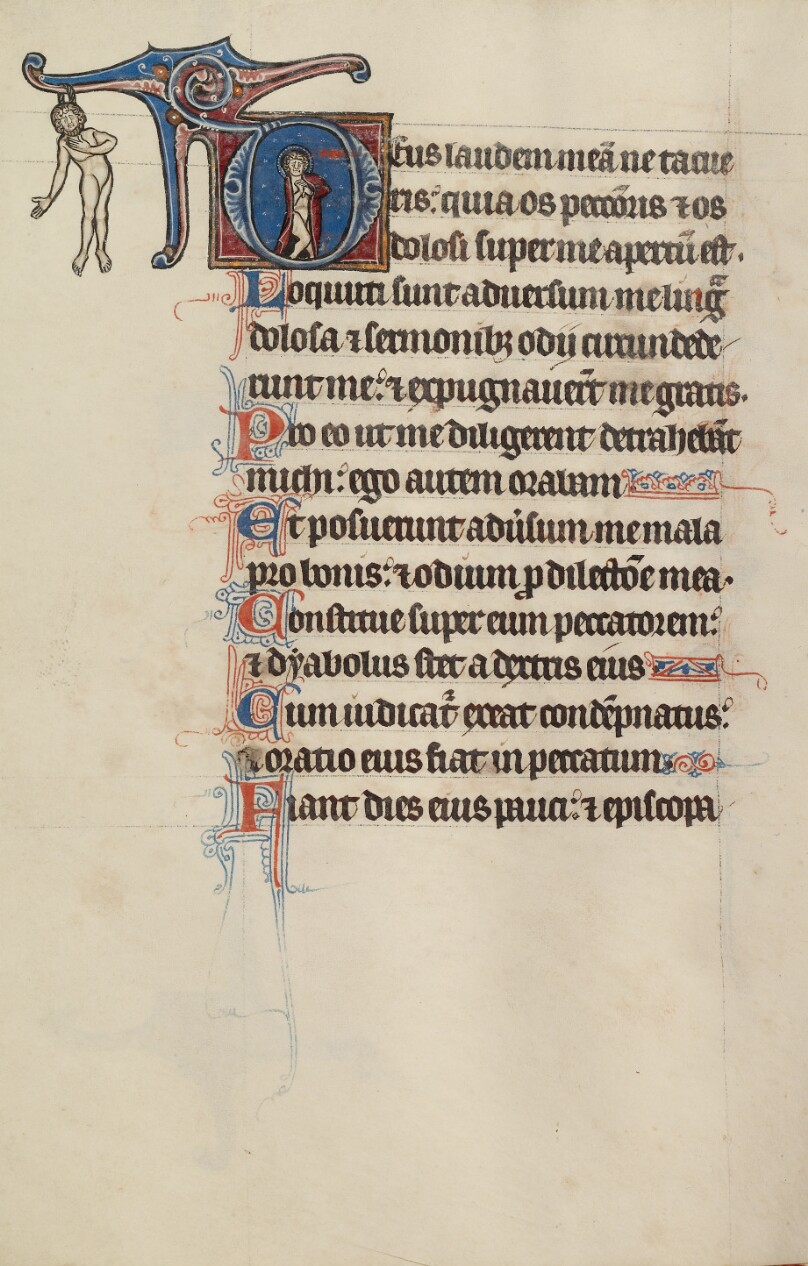 Deus laudem meā ne tacue
ris: quia os peccōris ⁊ os
dolosi super me apertū est.
Loquuti sunt aduersum me linḡ
dolosa ⁊ sermonibꝫ odij circundede
runt me: ⁊ expugnauer̄t me gratis.
Pro eo ut me diligerent detrahebāt
michi: ego autem orabam
Et posuerunt adūsum me mala
pro bonis: ⁊ odium ꝑ dilectōe mea.
Constitue super eum peccatorem:
⁊ dyabolus stet a dextris eius
Cum iudicat̄ exeat condēpnatus:
⁊ oratio eius fiat in peccatum
Fiant dies eius pauci: ⁊ episcopa